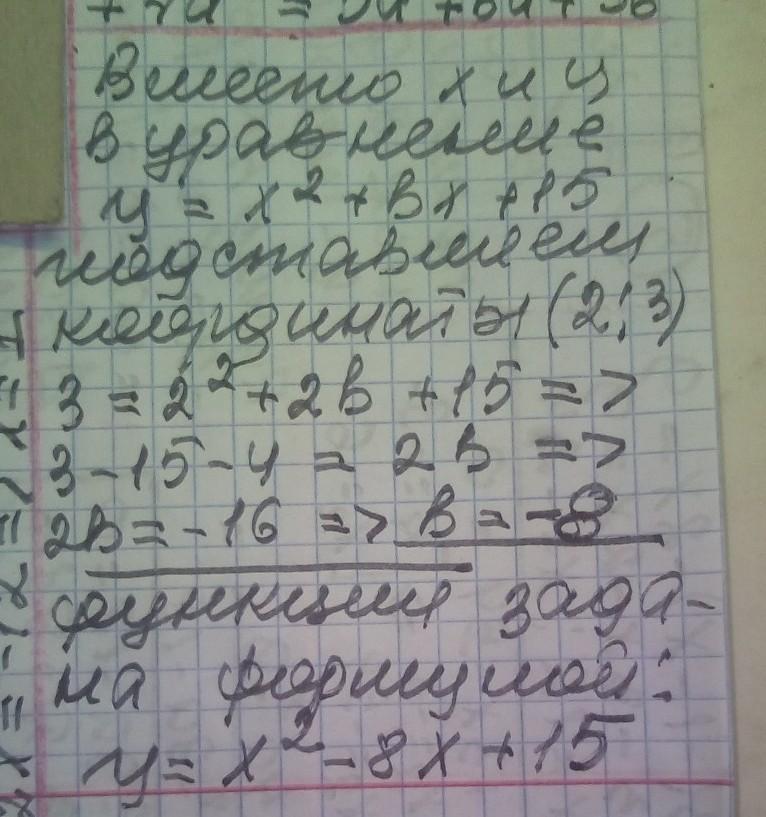 Вместо x и y
в уравнение
y = x² + вx + 15
подставляем
координаты (2;3)
3 = 2² + 2в + 15 =>
3 - 15 - 4 = 2в =>
2в = -16 => в = -8
функция зада-
на формулой:
y = x² - 8x + 15